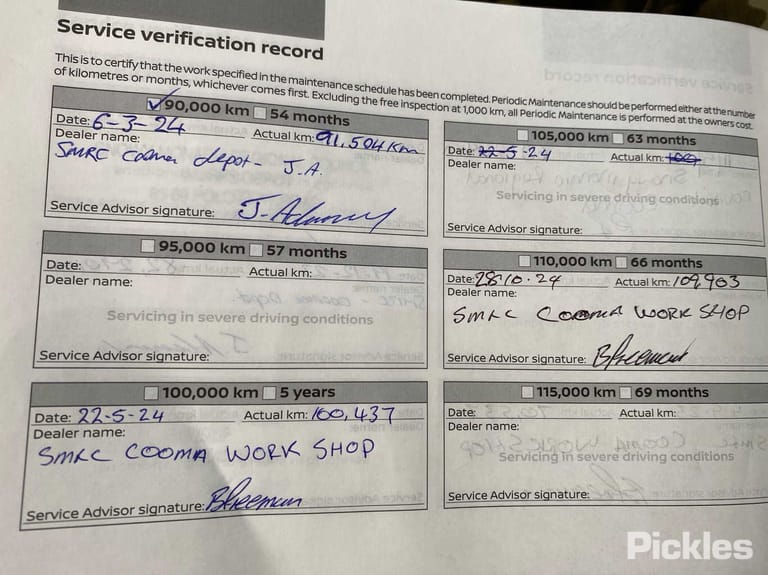 Service verification record
This is to certify that the work specified in the maintenance schedule has been completed. Periodic Maintenance should be performed either at the number
of kilometres or months, whichever comes first. Excluding the free inspection at 1,000 km, all Periodic Maintenance is performed at the owners cost.
90,000 km 54 months
Date: 6-3-24 Actual km: 91,504 Km
Dealer name:
SMRC Cooma depot - J.A.
Service Advisor signature:
95,000 km 57 months
Date: Actual km:
Dealer name:
Servicing in severe driving conditions
Service Advisor signature:
100,000 km 5 years
Date: 22-5-24 Actual km: 100,437
Dealer name:
SMRC COOMA WORK SHOP
Service Advisor signature:
105,000 km 63 months
Date: 22-5-24 Actual km: 100
Dealer name:
Servicing in severe driving conditions
Service Advisor signature:
110,000 km 66 months
Date: 28-10-24 Actual km: 109,903
Dealer name:
SMRC COOMA WORK SHOP
Service Advisor signature:
115,000 km 69 months
Date: Actual km:
Dealer name:
Servicing in severe driving conditions
Service Advisor signature:
Pickles